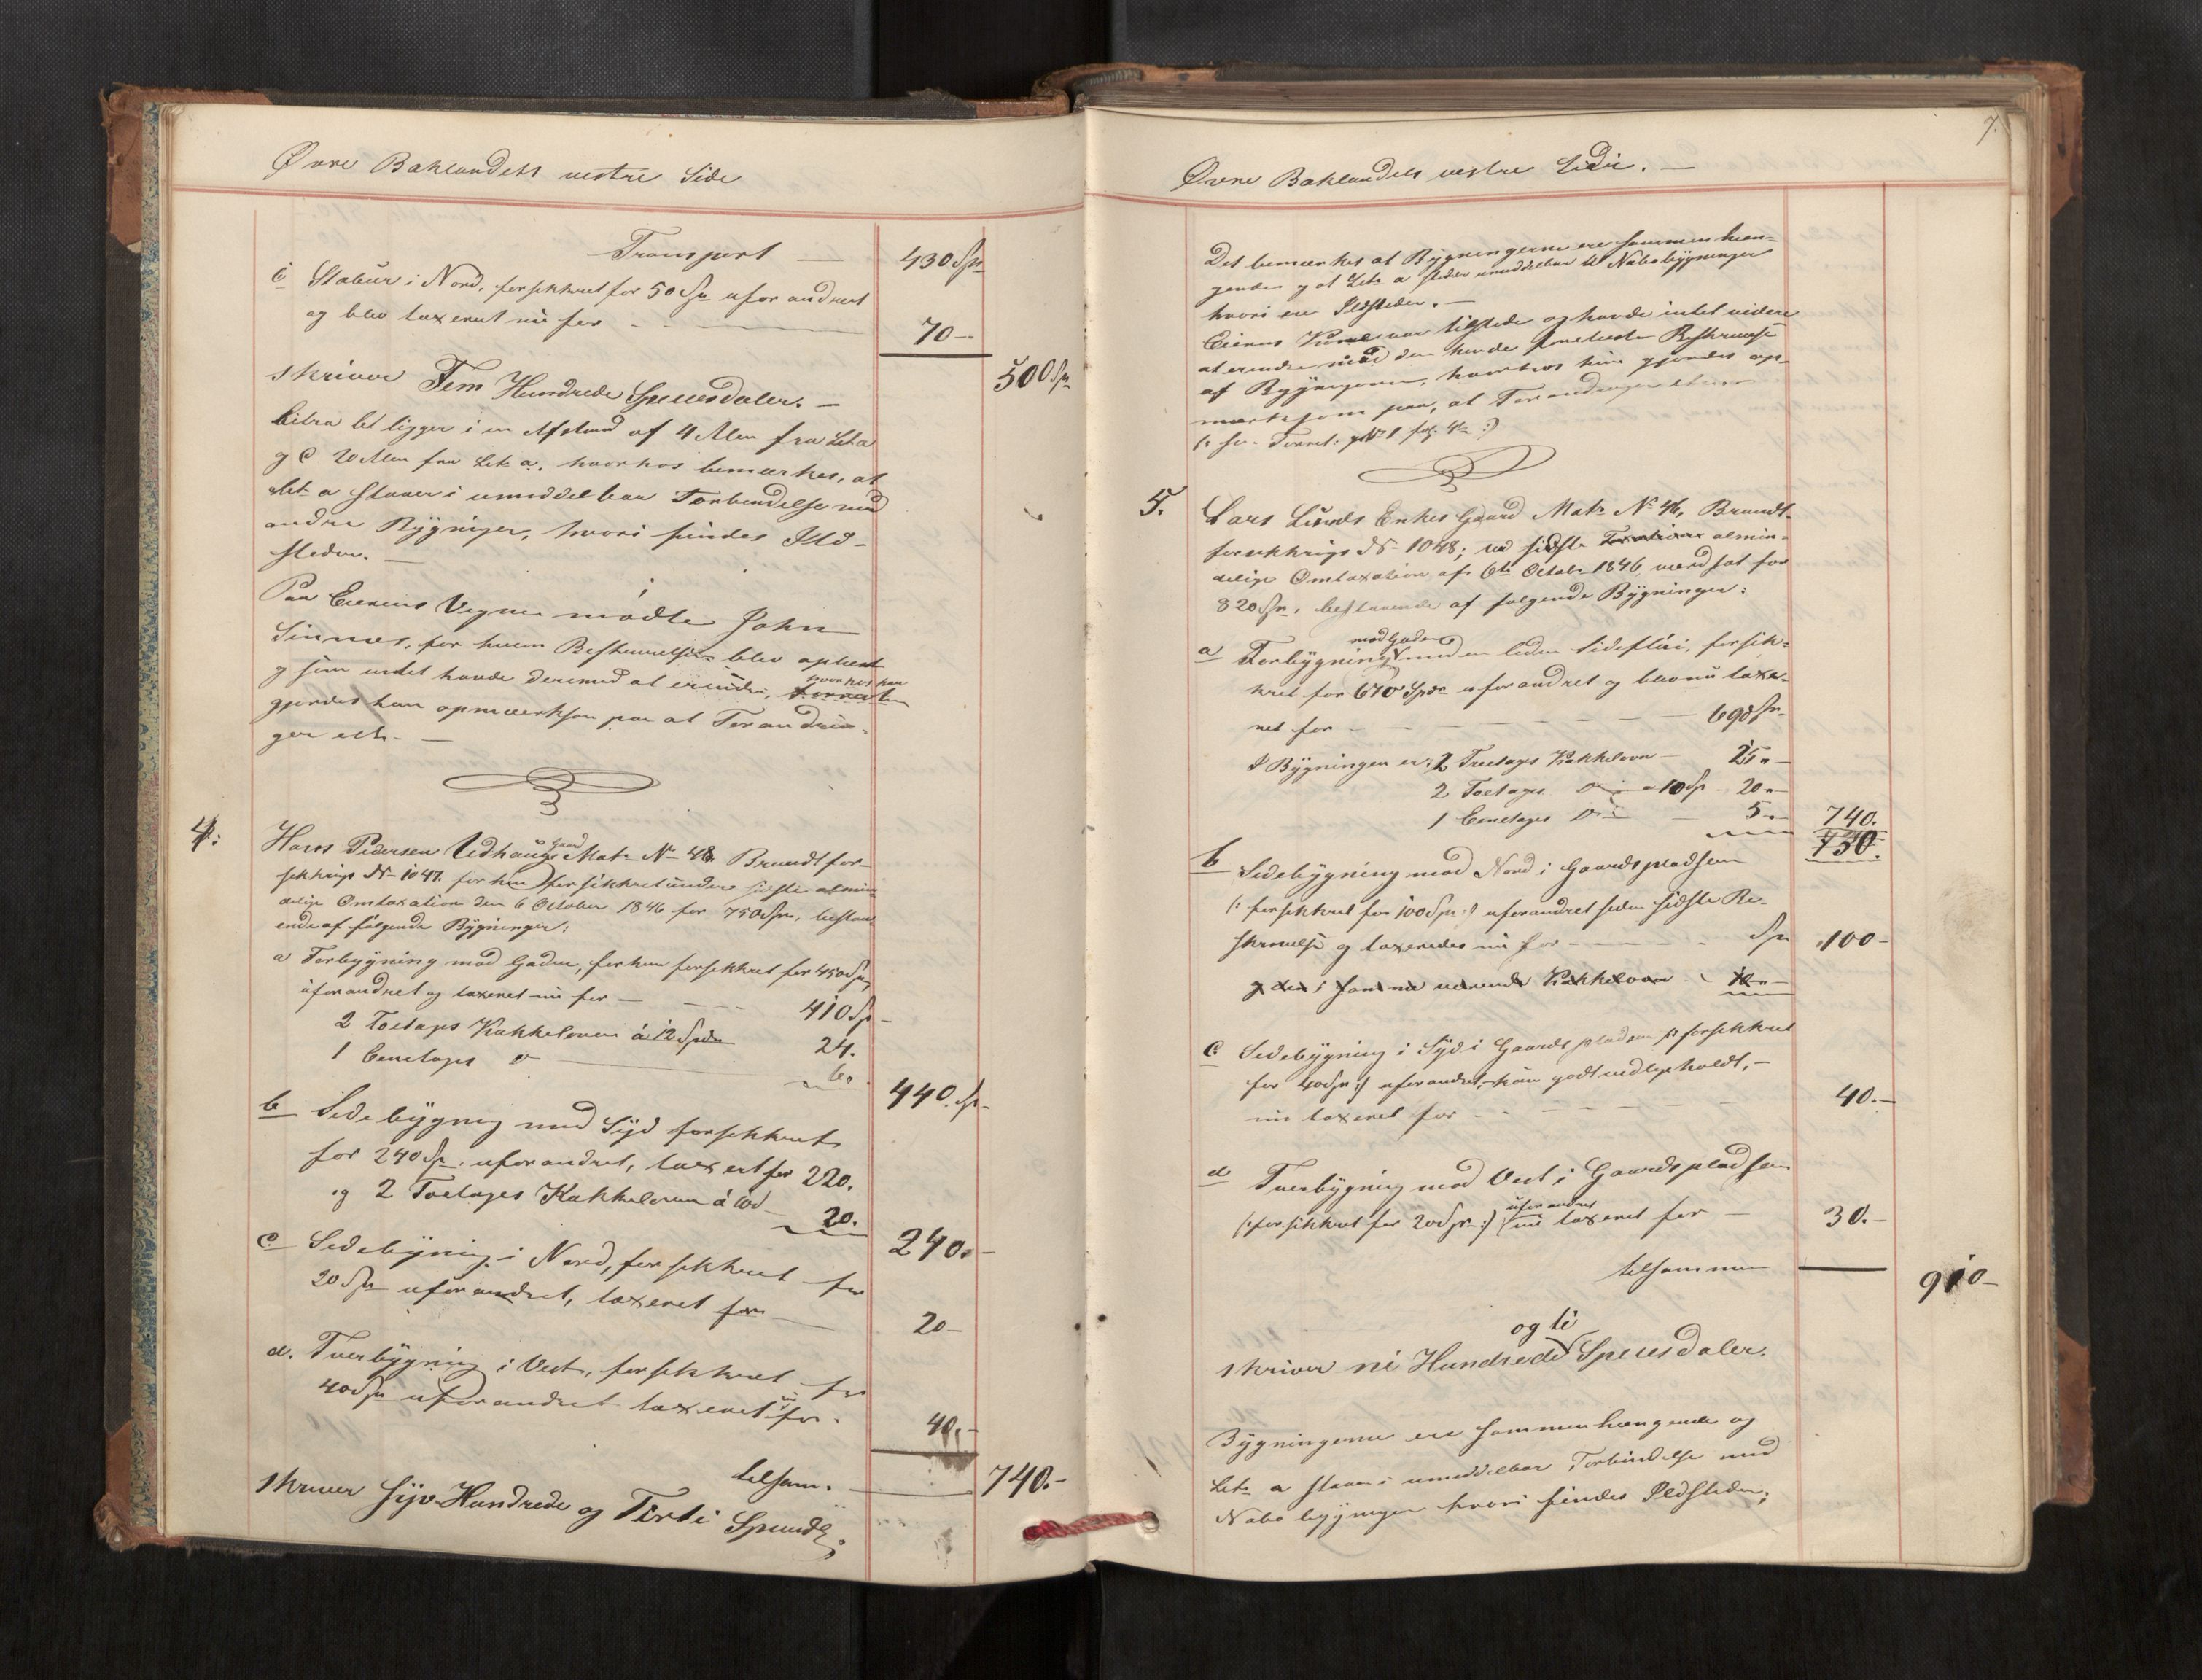 Øvre Baklandets vestre Side
Transport — 430 Sp
c Stabur i Nord, forsikkret for 50 Sp uforandret
og blev taxeret nu for — 70 —
skriver Fem Hundrede Speciesdaler. — 500 Sp
Litra b ligger i en Afstand af 4 Alen fra Litr a
og c 20 Alen fra Litr a, hvorhos bemærkes, at
Litr a staaer i umiddelbar Forbindelse med
andre Bygninger, hvori findes Ild-
steder. —
Paa Eierens Vegne mødte John
Sinnes, for hvem Beskrivelsen blev oplæst
og som intet havde derimod at erindre, hvorhos
gjordes han opmærksom paa at Forandrin-
ger etc. —
4. Hans Pedersen Udhaugs Gaard Matr No 48 Brandtfor-
sikkrings No 1047. forhen forsikkret under sidste almin
delige Omtaxation den 6 October 1846 for 750 Sp, bestaa-
ende af følgende Bygninger:
a Forbygning mod Gaden, forhen forsikkret for 450 Sp
uforandret og taxeret nu for — 410 Sp
2 Toetages Kakkelovne á 12 Spd 24.
1 Eenetages do — 6. 440 Sp
b Sidebygning mod Syd forsikkret
for 240 Sp. uforandret, taxert for 220.
og 2 Toetages Kakkelovne á 10 20. 240. —
c Sidebygning i Nord, forsikkret for
20 Sp uforandret, taxeret for — 20 —
d. Tverbygning i Vest, forsikkret for
40 Sp uforandret taxeret nu for. 40. —
tilsam. 740. —
skriver Syv Hundrede og Firti Speciesd.
7.
Øvre Baklandets vestre Side. —
Det bemærkes at Bygningerne ere sammenhæn-
gende og at Litr a støder umiddelbar til Nabobygninger
hvori ere Ildsteder. —
Eierens Kone var tilstede og havde intet videre
at erindre mod den hende forelæste Beskrivelse
af Bygningerne, hvorhos hun gjordes op-
mærksom paa, at Forandringer etc
5. Lars Lunds Enkes Gaard Matr No 46, Brandt-
forsikkrings No 1048; ved sidste almin-
delige Omtaxation af 6te Octobr 1846 værdsat for
820 Sp, bestaaende af følgende Bygninger:
a Forbygning mod Gaden med en liden Sidefløi, forsik-
kret for 670 Spd uforandret og blev nu taxe-
ret for — 690 Sp
I Bygningen er: 2 Treetages Kakkelovn — 25 —
2 Toetages do a 10 Sp — 20 —
1 Eenetages do — 5 — 740.
730.
b Sidebygning mod Nord i Gaardspladsen
(: forsikkret for 100 Sp :) uforandret siden sidste Be-
skrivelse og taxeredes nu for — Sp 100 —
og den i samme værende Kakkelovn — 10 —
c. Sidebygning i Syd i Gaardspladsen (: forsikkret
for 40 Sp :) uforandret, kun godt vedligeholdt, —
nu taxeret for — 40. —
d Tverbygning mod Vest i Gaardspladsen
(: forsikkret for 20 Sp :) uforandret nu taxeret for — 30. —
tilsammen 910 —
skriver ni Hundrede og ti Speciesdaler.
Bygningerne ere sammenhængende og
Litr a staaer i umiddelbar Forbindelse med
Nabobygninger hvori findes Ildsteder;